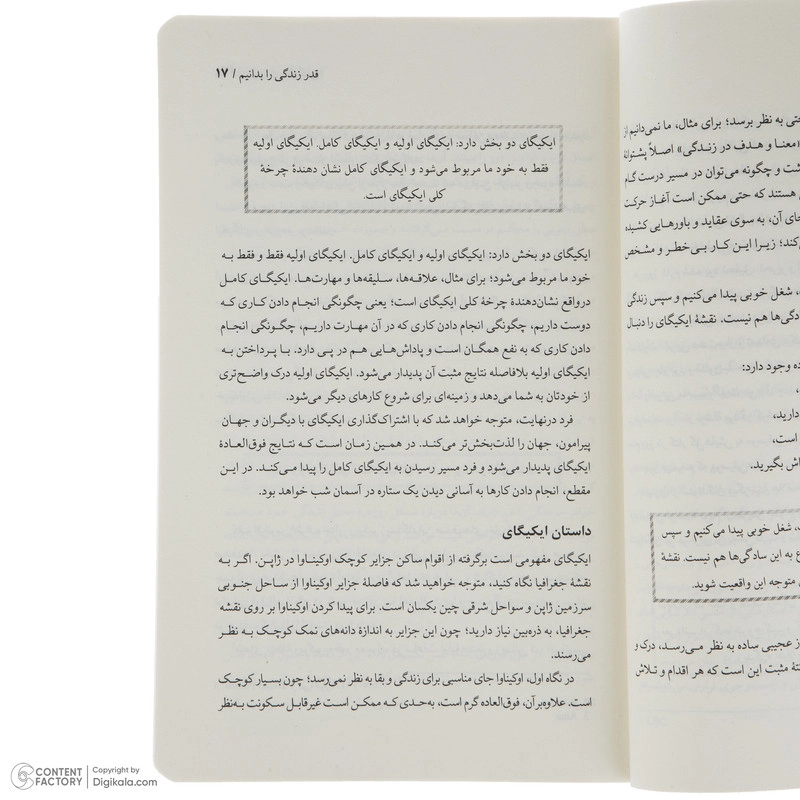 حتی به نظر برسد؛ برای مثال، ما نمی‌دانیم از
«معنا و هدف در زندگی» اصلاً پشتوانهٔ
شت و چگونه می‌توان در مسیر درست گام
هستند که حتی ممکن است آغاز حرکت
جای آن، به سوی عقاید و باورهایی کشیده
کند؛ زیرا این کار بی‌خطر و مشخص
شغل خوبی پیدا می‌کنیم و سپس زندگی
ادگی‌ها هم نیست. نقشهٔ ایکیگای را دنبال
ده وجود دارد:
دارید،
است،
اش بگیرید.
شغل خوبی پیدا می‌کنیم و سپس
ع به این سادگی‌ها هم نیست. نقشهٔ
متوجه این واقعیت شوید.
ز عجیبی ساده به نظر می‌رسد، درک و
تهٔ مثبت این است که هر اقدام و تلاش
قدر زندگی را بدانیم / ۱۷
ایکیگای دو بخش دارد: ایکیگای اولیه و ایکیگای کامل. ایکیگای اولیه
فقط به خود ما مربوط می‌شود و ایکیگای کامل نشان دهندهٔ چرخهٔ
کلی ایکیگای است.
ایکیگای دو بخش دارد: ایکیگای اولیه و ایکیگای کامل. ایکیگای اولیه فقط و فقط به
خود ما مربوط می‌شود؛ برای مثال، علاقه‌ها، سلیقه‌ها و مهارت‌ها. ایکیگای کامل
درواقع نشان‌دهندهٔ چرخهٔ کلی ایکیگای است؛ یعنی چگونگی انجام دادن کاری که
دوست داریم، چگونگی انجام دادن کاری که در آن مهارت داریم، چگونگی انجام
دادن کاری که به نفع همگان است و پاداش‌هایی هم در پی دارد. با پرداختن به
ایکیگای اولیه بلافاصله نتایج مثبت آن پدیدار می‌شود. ایکیگای اولیه درک واضح‌تری
از خودتان به شما می‌دهد و زمینه‌ای برای شروع کارهای دیگر می‌شود.
فرد درنهایت، متوجه خواهد شد که با اشتراک‌گذاری ایکیگای با دیگران و جهان
پیرامون، جهان را لذت‌بخش‌تر می‌کند. در همین زمان است که نتایج فوق‌العادهٔ
ایکیگای پدیدار می‌شود و فرد مسیر رسیدن به ایکیگای کامل را پیدا می‌کند. در این
مقطع، انجام دادن کارها به آسانی دیدن یک ستاره در آسمان شب خواهد بود.
داستان ایکیگای
ایکیگای مفهومی است برگرفته از اقوام ساکن جزایر کوچک اوکیناوا در ژاپن. اگر به
نقشهٔ جغرافیا نگاه کنید، متوجه خواهید شد که فاصلهٔ جزایر اوکیناوا از ساحل جنوبی
سرزمین ژاپن و سواحل شرقی چین یکسان است. برای پیدا کردن اوکیناوا بر روی نقشه
جغرافیا، به ذره‌بین نیاز دارید؛ چون این جزایر به اندازهٔ دانه‌های نمک کوچک به نظر
می‌رسند.
در نگاه اول، اوکیناوا جای مناسبی برای زندگی و بقا به نظر نمی‌رسد؛ چون بسیار کوچک
است. علاوه‌برآن، فوق‌العاده گرم است، به‌حدی که ممکن است غیرقابل سکونت به‌نظر
CONTENT FACTORY
Copyright by
Digikala.com